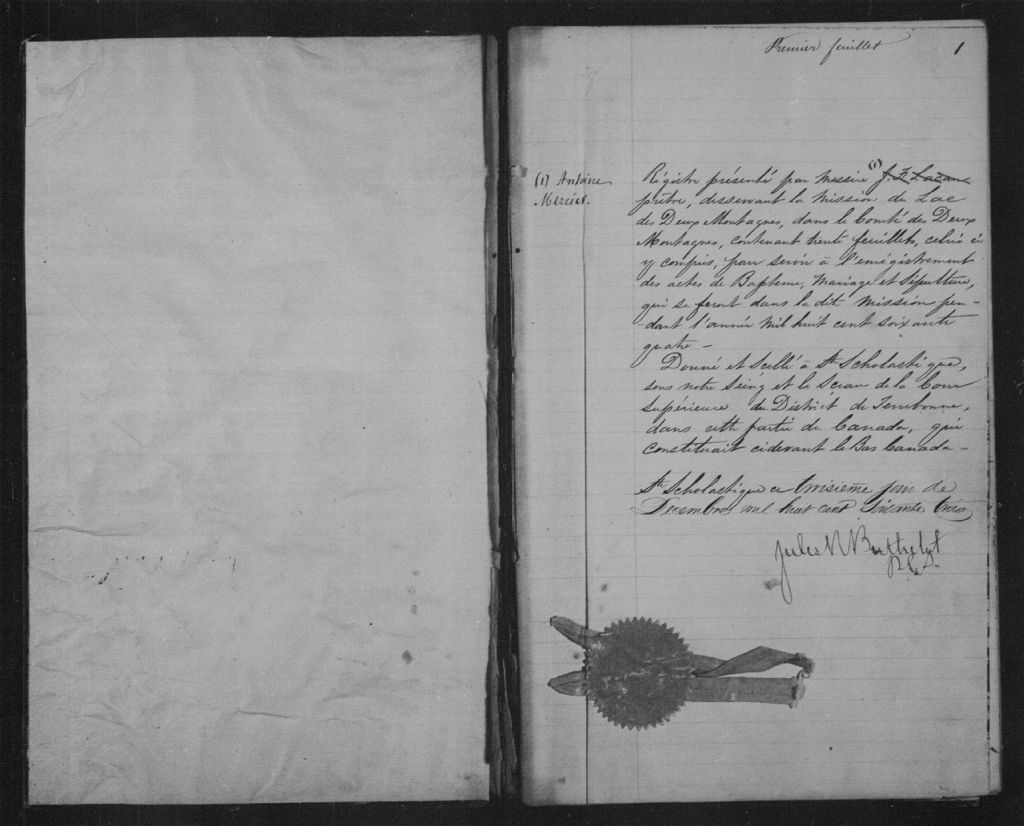 Premier feuillet 1
(1) Antoine
Mercier.
Régistre présenté par Messire (1) J. F. Lazan
prêtre, desservant la Mission du Lac
des Deux Montagnes, dans le Comté des Deux
Montagnes, contenant trente feuillets, celui ci
y compris, pour servir à l'enrégistrement
des actes de Bapteme, Mariage et Sépulture,
qui se feront dans la dite Mission pen-
-dant l'année Mil huit cent soixante
quatre -
Donné et Scellé à Ste Scholastique,
sous notre Seing et le Sceau de la Cour
Supérieure du District de Terrebonne,
dans cette partie du Canada, qui
constituait cidevant le Bas Canada -
Ste Scholastique ce troisième jour de
Decembre mil huit cent soixante trois
Jules R Berthelot